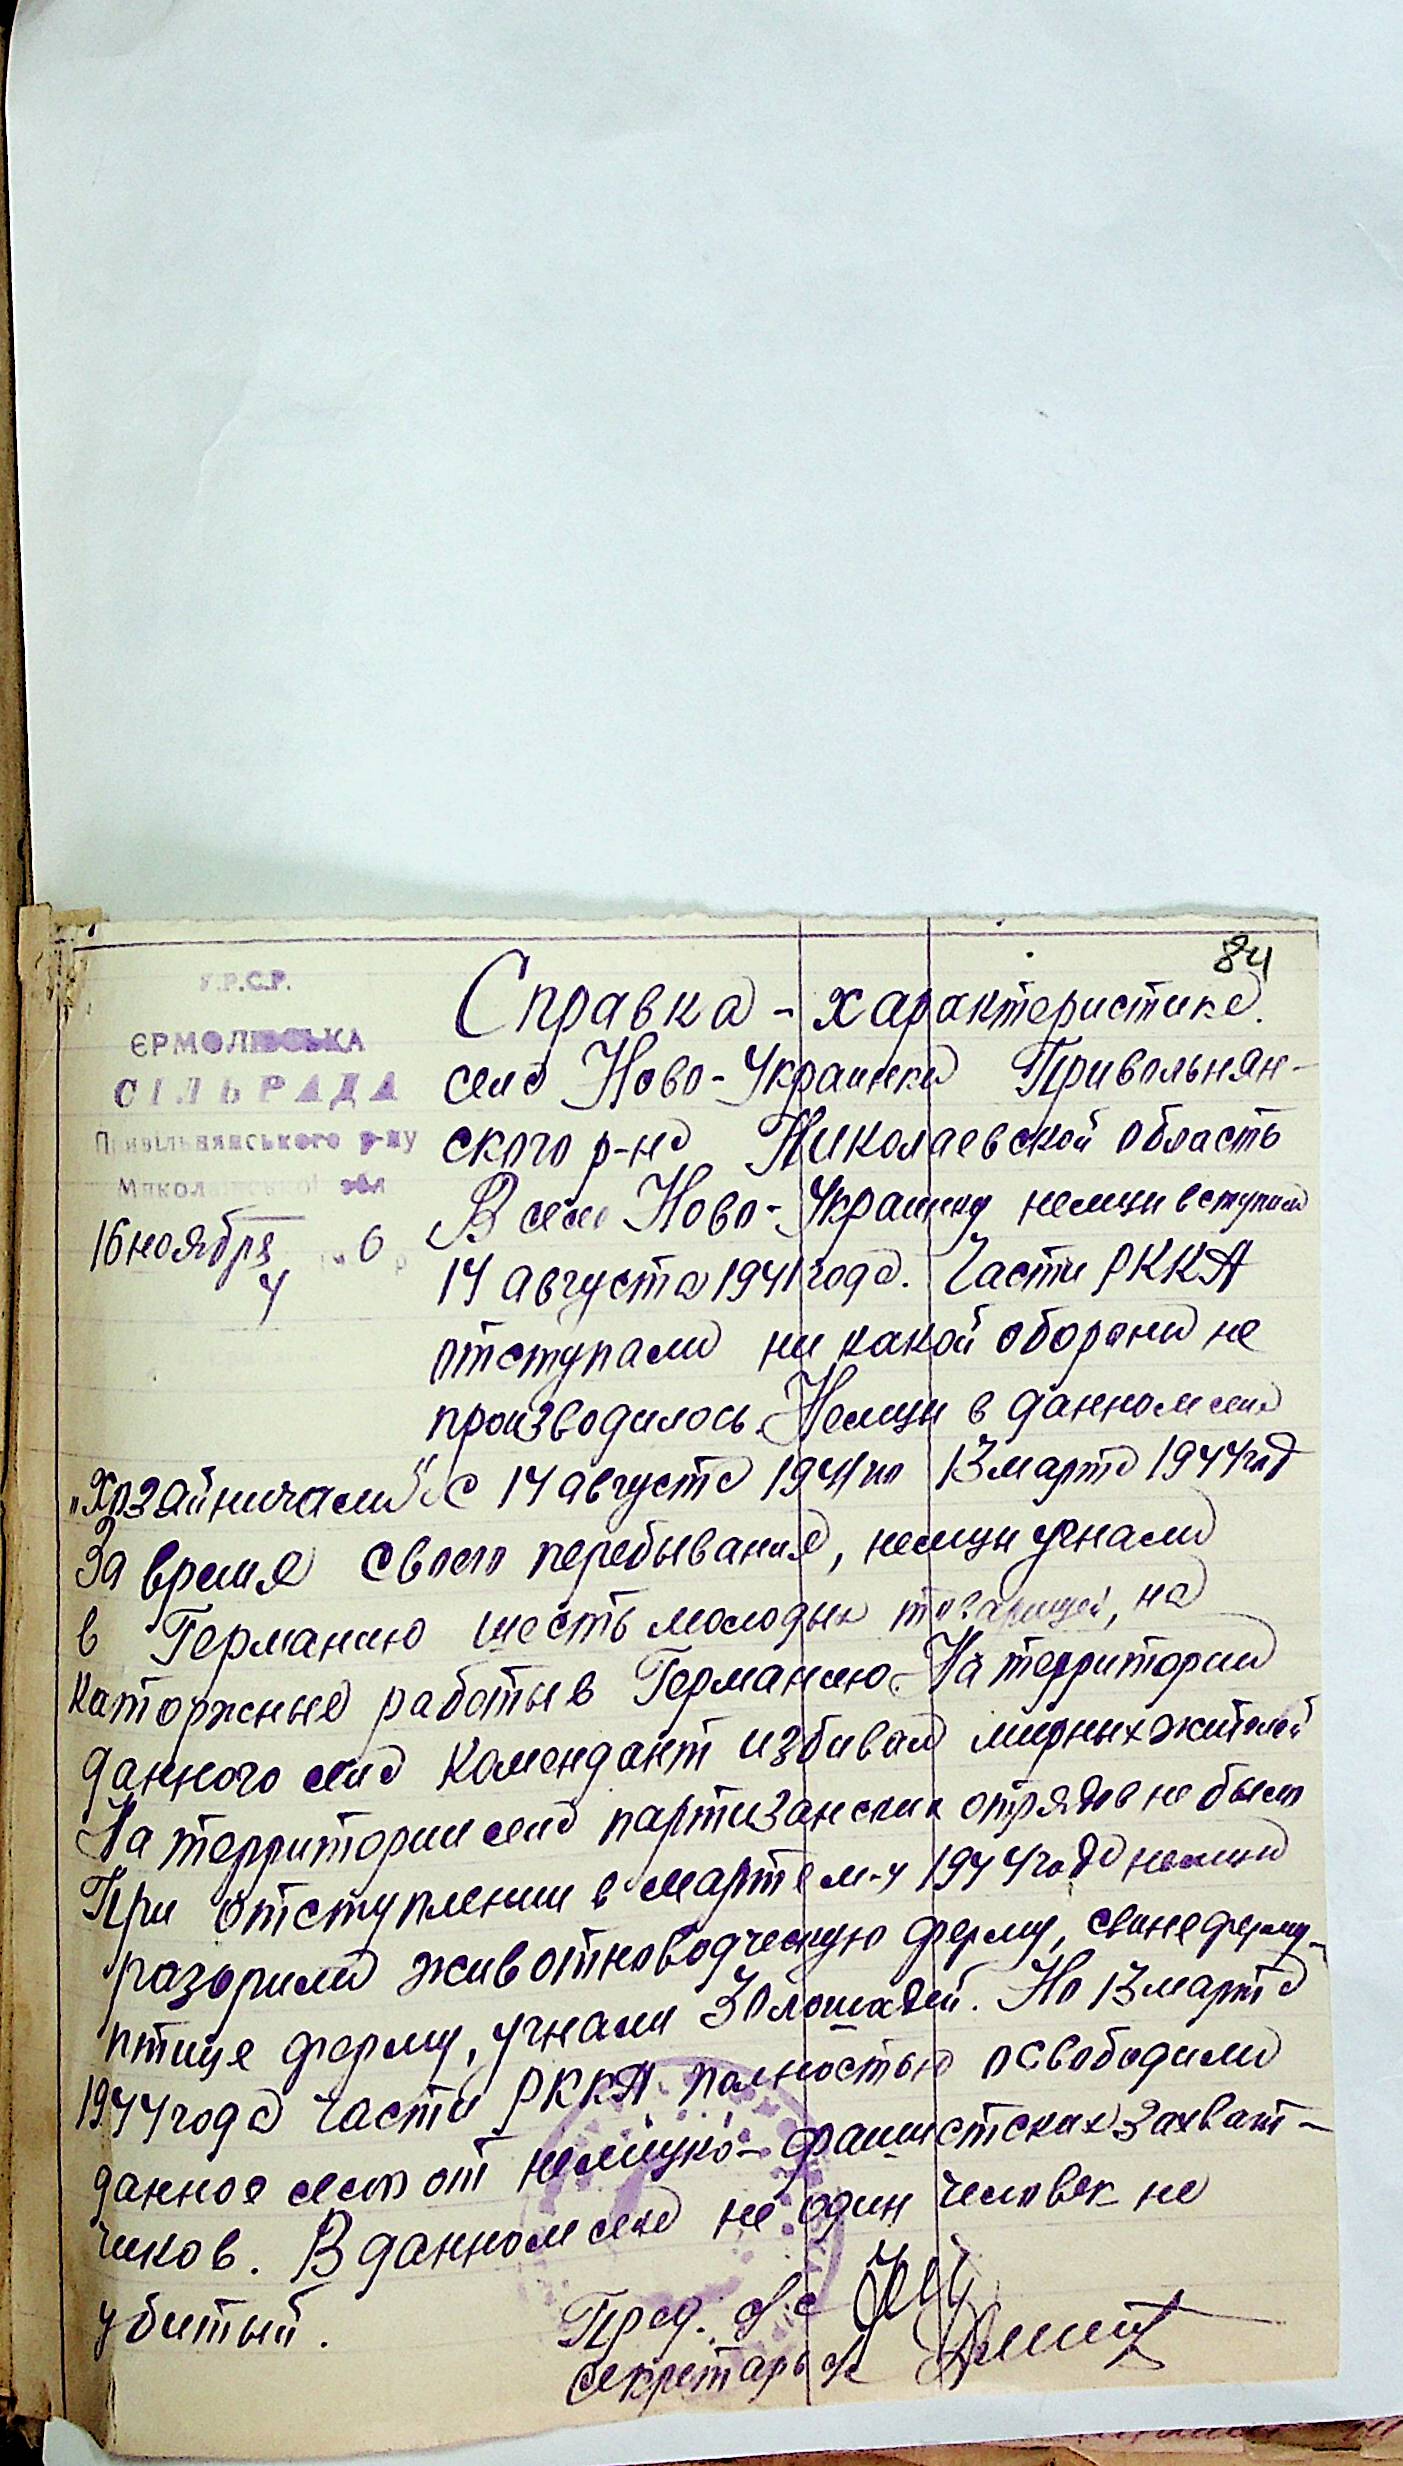 84
У.Р.С.Р.
ЄРМОЛІВСЬКА
СІЛЬРАДА
Привільнянського р-ну
Миколаївської обл
16 ноября 6
4
Справка - характеристика.
села Ново-Украинка Привольнян-
ского р-на Николаевской область
В село Ново-Украинку немцы вступили
14 августа 1941 года. Части РККА
отступали ни какой обороны не
производилось. Немцы в данном селе
„Хозайничали" с 14 августа 1941 по 13 марта 1944 год
За время своего перебывания, немцы угнали
в Германию шесть молодых товарищей, на
каторжные работы в Германию. На территории
данного села комендант избивал мирных жителей
На территории села партизанских отрядов не было
При отступлении в марте м-ц 1944 года немцы
разорили животноводческую ферму, свинеферму,
птице ферму, угнали 30 лошадей. Но 13 марта
1944 года части РККА полностью освободили
данное село от немецко-фашистских захват-
чиков. В данном селе не один человек не
убитый.
Пред. с/с
секретарь с/с